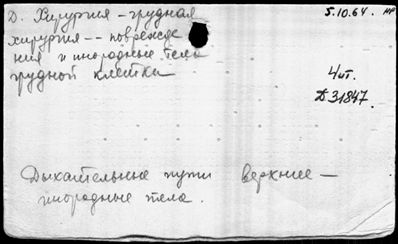 Д. Хирургия - грудная
5.10.64. НР
хирургия -- поврежде
ния и инородные тела
грудной клетки
4 ит.
Д 31847
Дыхательные пути верхние -
инородные тела.